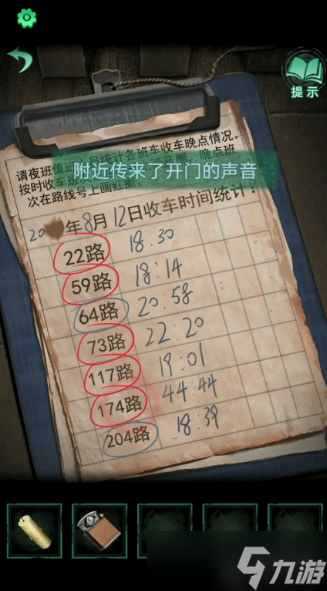 提示
请夜班值班人员统计各班车收车晚点情况。
按时收车 晚点班
次在路线号上画红圈
附近传来了开门的声音
20 年8月12日收车时间统计：
22路 18:30
59路 18:14
64路 20:58
73路 22:20
117路 19:01
174路 44:44
204路 18:39
九游